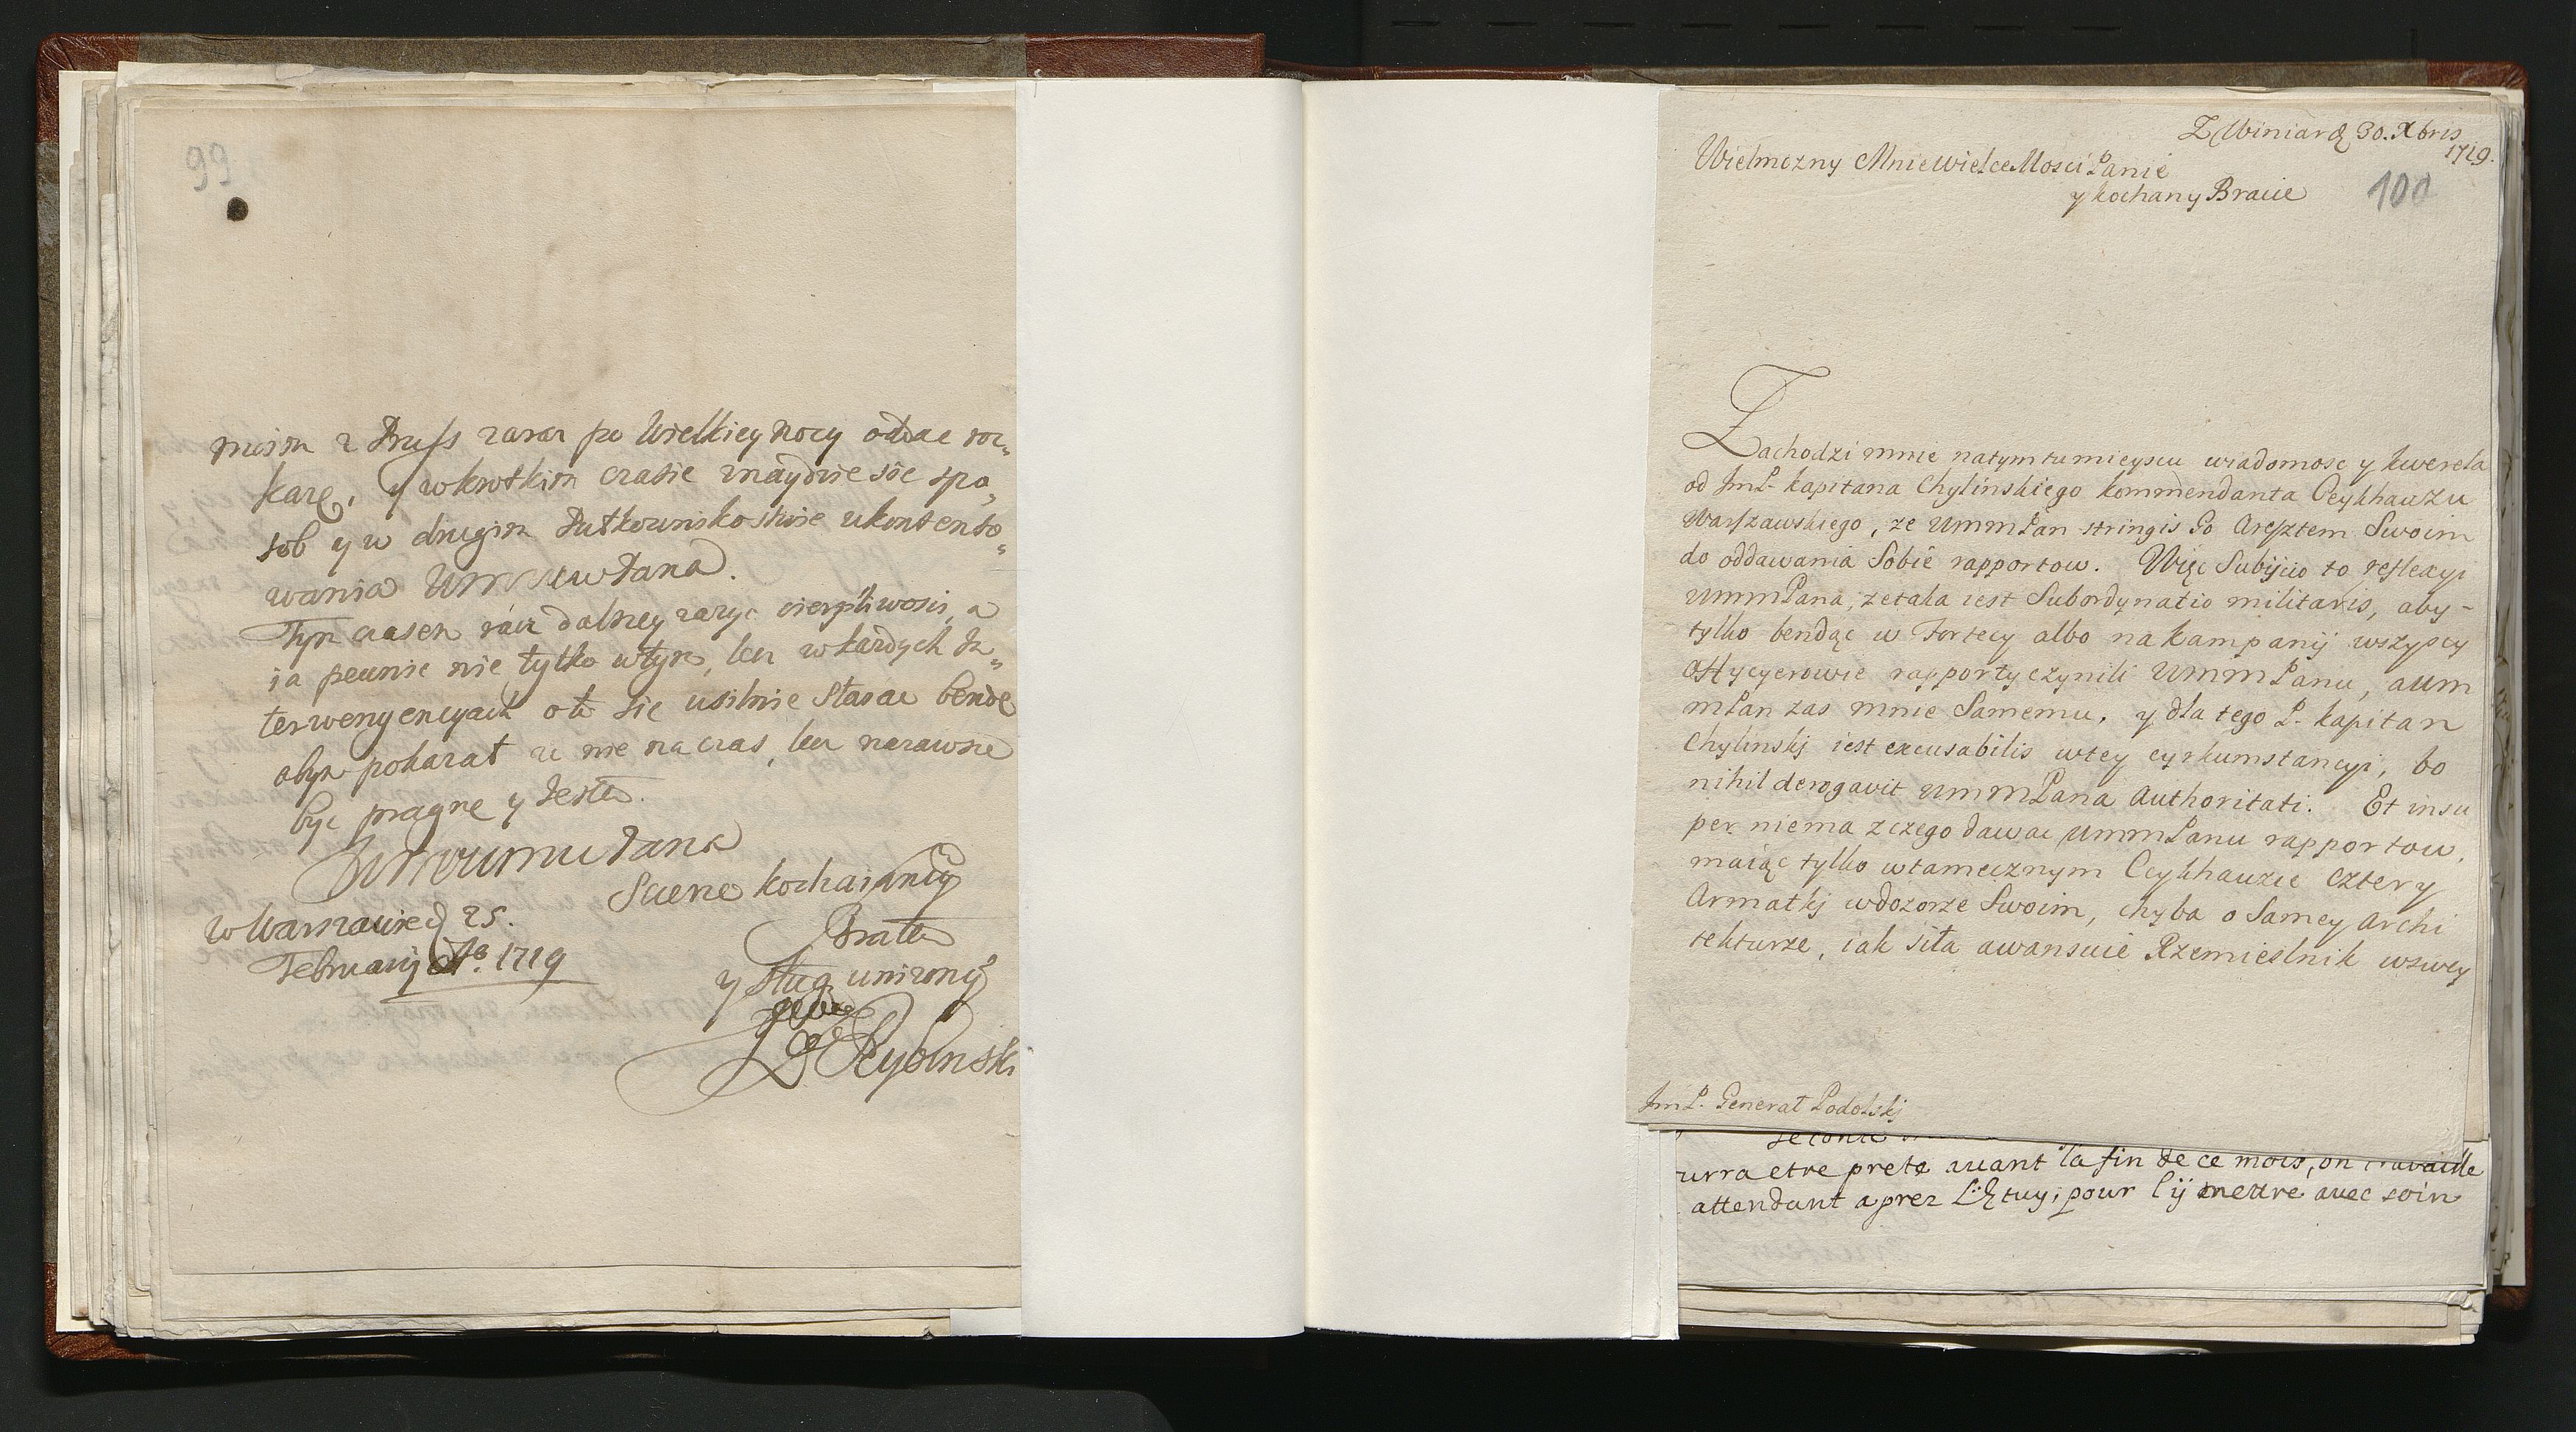 99
mism z Pruss zaraz po Wielkiey nocy oddac roz„
kaze, y w krotkim czasie znaydzie sie spo„
sob y w drugim Putkownikostwie ukontento„
wania
Tym czasem racz dalszey zazyc cierpliwosci, a
ia pewnie nie tylko w tym, lecz w kazdych In„
terwencyach o to sie usilnie starac bende
abym pokazal ze nie na czas, lecz nazawsze
byc pragne y Jestem.
Pana
Szczerze kochaiącym
Bratem
y sługą unizonym
w Warszawie d 25.
February Ao. 1719
Rybinski
Z Winiar d 30. Xbris
1719.
Wielmozny Mnie Wielce Mosci Panie
y kochany Bracie
100
Zachodzi mnie natym tu mieyscu wiadomosc y kwerela
od JmP. Kapitana Chylinskiego kommendanta Ceykhauzu
Warszawskiego, ze UmmPan stringis Go Aresztem Swoim
do oddawania Sobie rapportow. Więc Subijcio to reflexyi
UmmPana, ze taka iest Subordynatio militaris, aby-
tylko bendąc w Fortecy albo na kampanij wszyscy
Offycyerowie rapporty czynili UmmPanu, a Um
mPan zas mnie Samemu, y dla tego P. Kapitan
Chylinskj iest excusabilis w tey cyrkumstancyi, bo
nihil derogavit UmmPana Authoritati. Et insu
per niema z czego dawac UmmPanu rapportow,
maiąc tylko w tamecznym Ceykhauzie cztery
Armatkj w dozorze Swoim, chyba o Samey Archi
tekturze, iak siła awansuie Rzemieslnik w swey
JmP. Generał Podolskj
seconde
urra etre prete avant la fin de ce mois, on travaille
attendant aprez L'Etuy, pour l'ij mettre avec soin